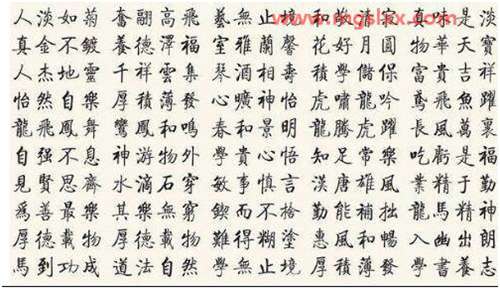 www.mgslxx.com
人淡如菊 奮翮高飛 藝無止境 和 清 真味是淡
真金不鍍 養德澤福 室雅蘭馨 花好月圓 物華天寶
人杰地靈 千祥雲集 琴酒相壽 積學儲保 富貴吉祥
怡然自樂 厚積薄發 心曠神怡 虎嘯龍吟 鳶飛魚躍
龍飛鳳舞 鸞鳳和鳴 春和景明 龍騰虎躍 長風萬裏
自强不息 神游物外 學貴心悟 知足常樂 吃虧是福
見賢思齊 水滴石穿 敏事慎言 漢唐雄風 業精于勤
爲善最樂 其樂無窮 鍥而不捨 勤能補拙 龍馬精神
厚德載物 厚德載物 難得糊塗 惠風和暢 入幽出朗
馬到功成 道法自然 學無止境 厚積薄發 學書養志